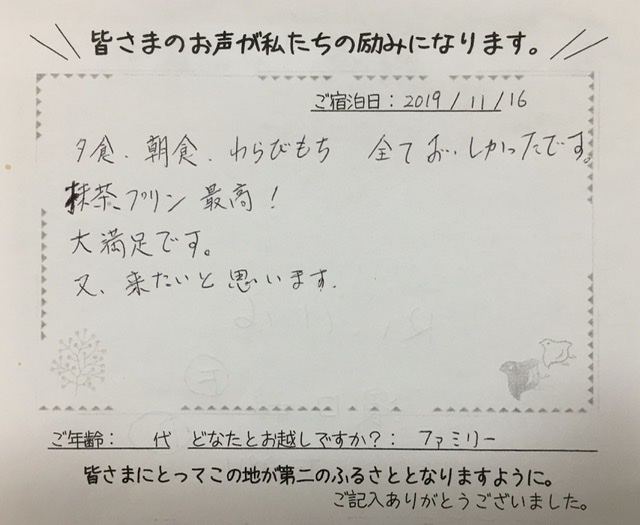 皆さまのお声が私たちの励みになります。
ご宿泊日：2019/11/16
夕食、朝食、わらびもち 全ておいしかったです。
抹茶プリン 最高！
大満足です。
又、来たいと思います.
ご年齢： 代 どなたとお越しですか？： ファミリー
皆さまにとってこの地が第二のふるさととなりますように。
ご記入ありがとうございました。